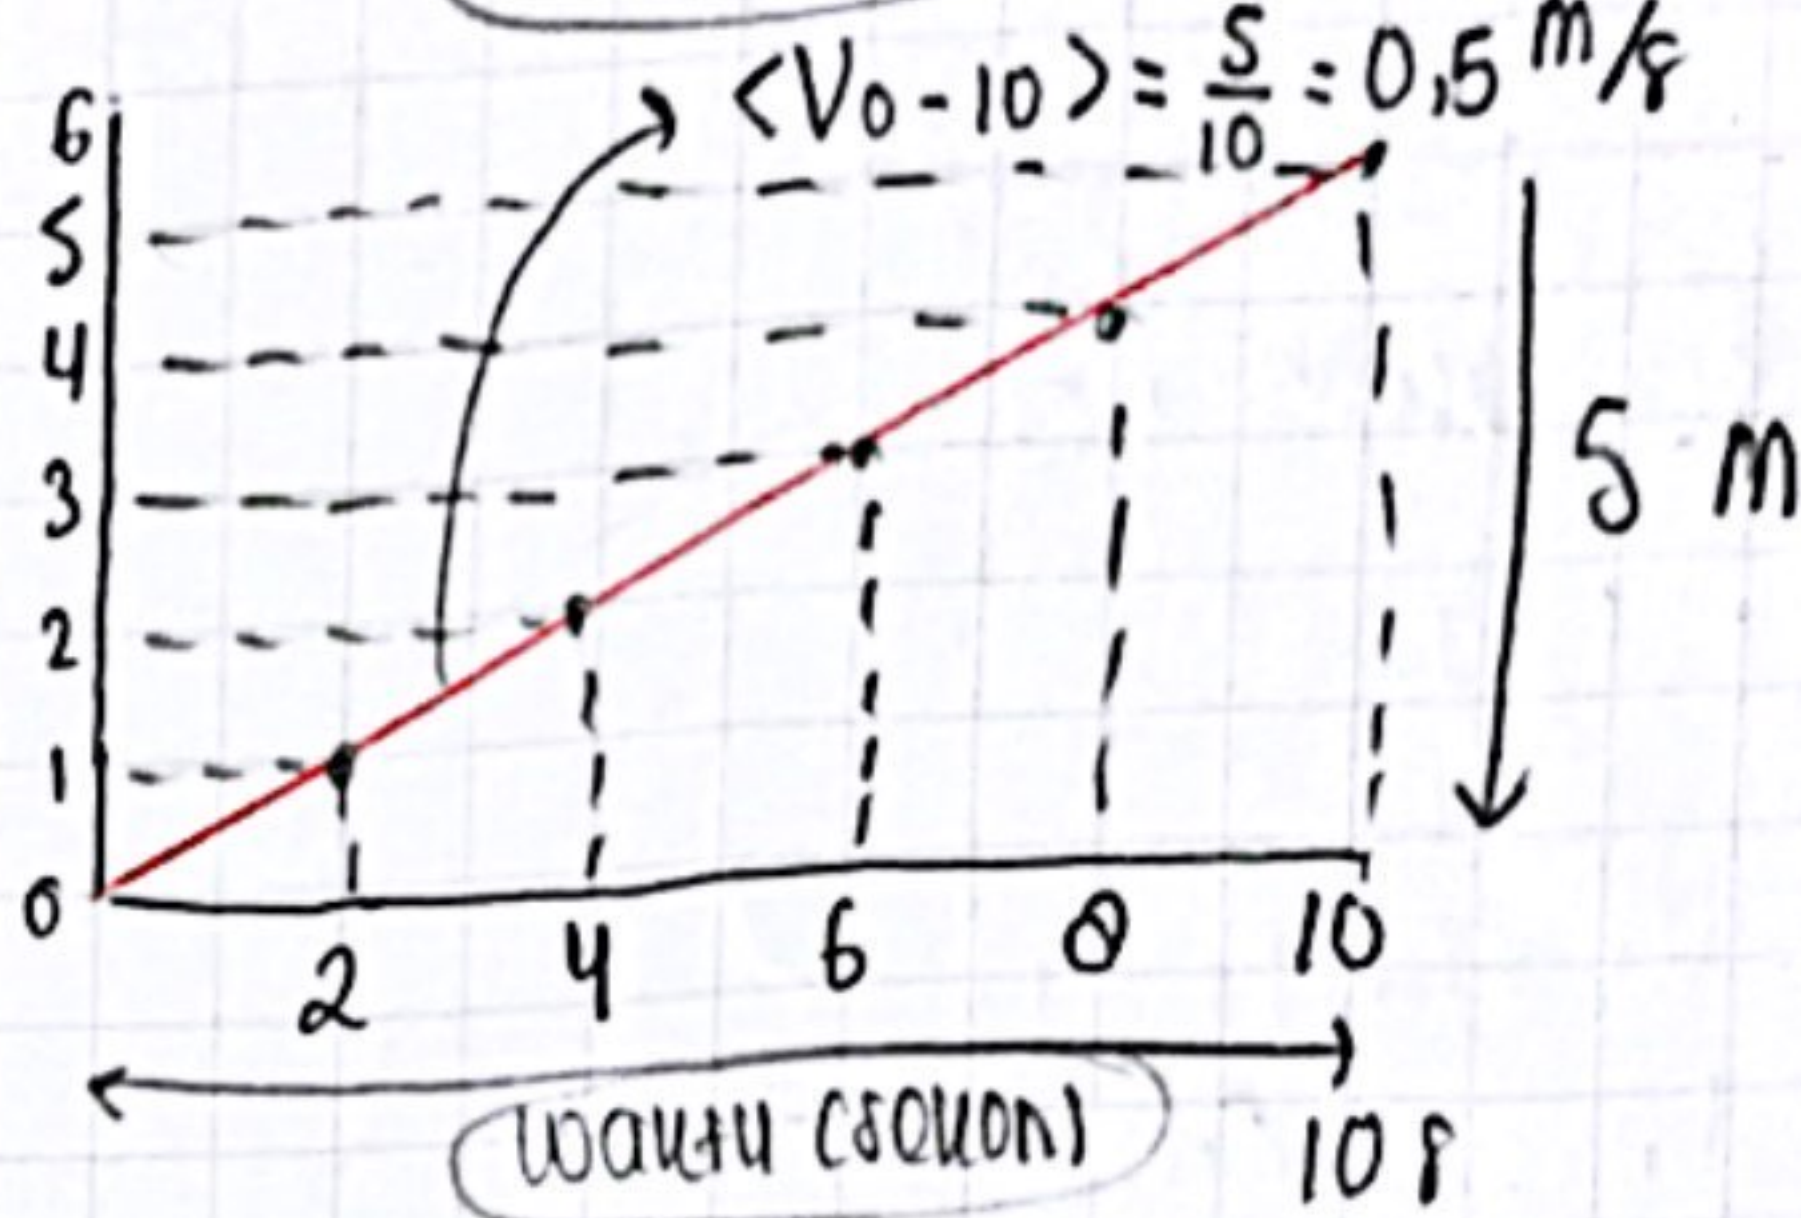 <V0-10> = 5/10 = 0,5 m/s
6
5
4
3
2
1
0
5 m
2 4 6 8 10
Waktu (sekon)
10 s